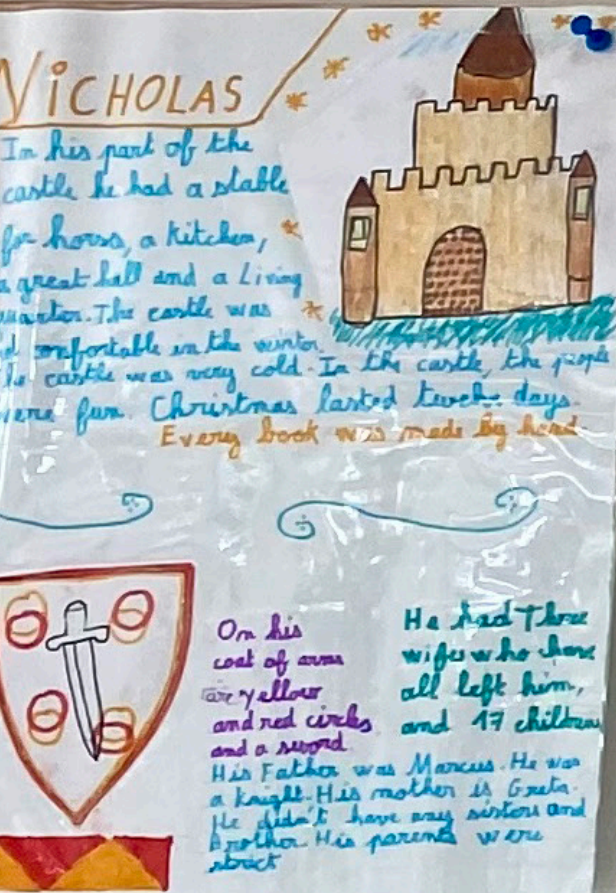 NICHOLAS
In his part of the
castle he had a stable
for horss, a kitchen,
a great hall and a Living
quarter. The castle was
confortable in the winter
castle was very cold. In the castle, the people
fun. Christmas lasted twelve days.
Every book was made by hand
On his
coat of arms
are yellow
and red circles
and a sword.
He had Three
wifes who have
all left him,
and 17 children
His Father was Marcus. He was
a knight. His mother is Greta.
He didn't have any sisters and
Brother. His parents were
strict